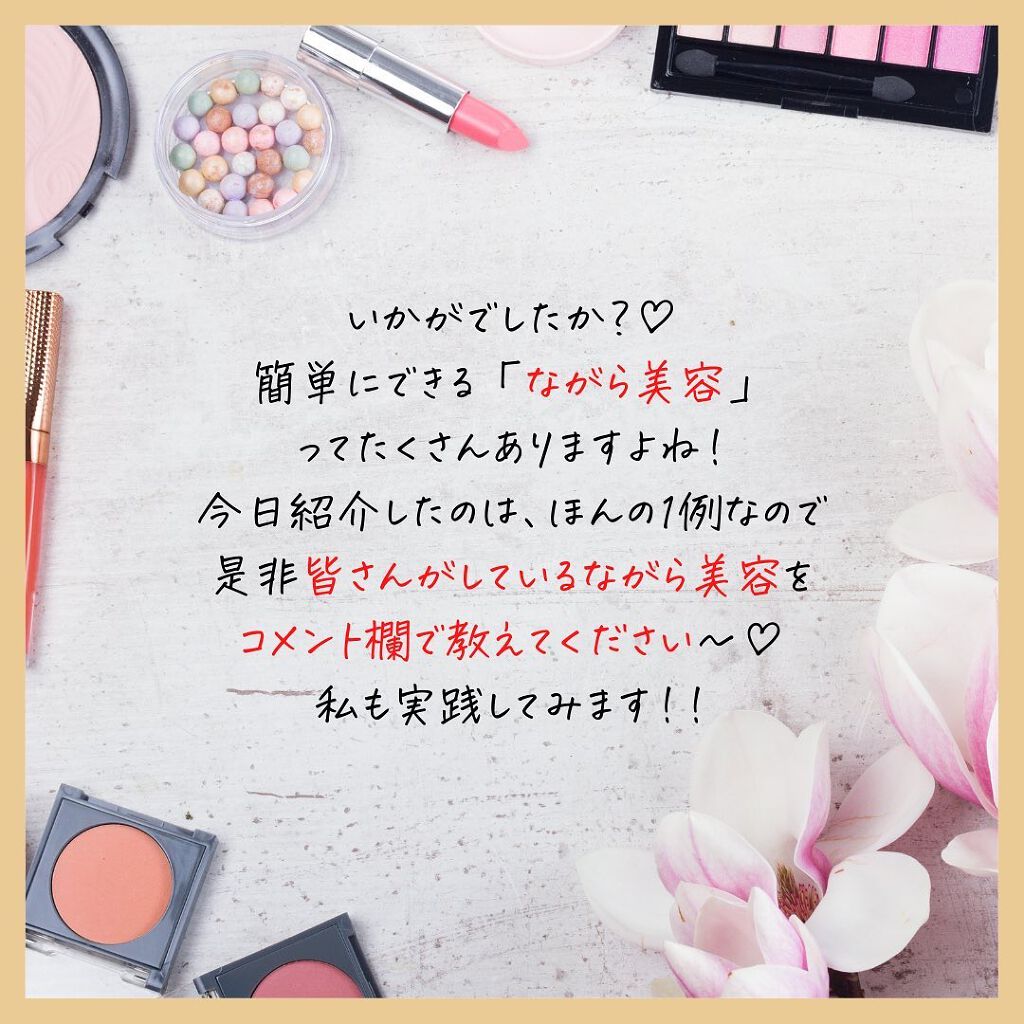 いかがでしたか？♡
簡単にできる「ながら美容」
ってたくさんありますよね！
今日紹介したのは、ほんの1例なので
是非皆さんがしているながら美容を
コメント欄で教えてください〜♡
私も実践してみます！！